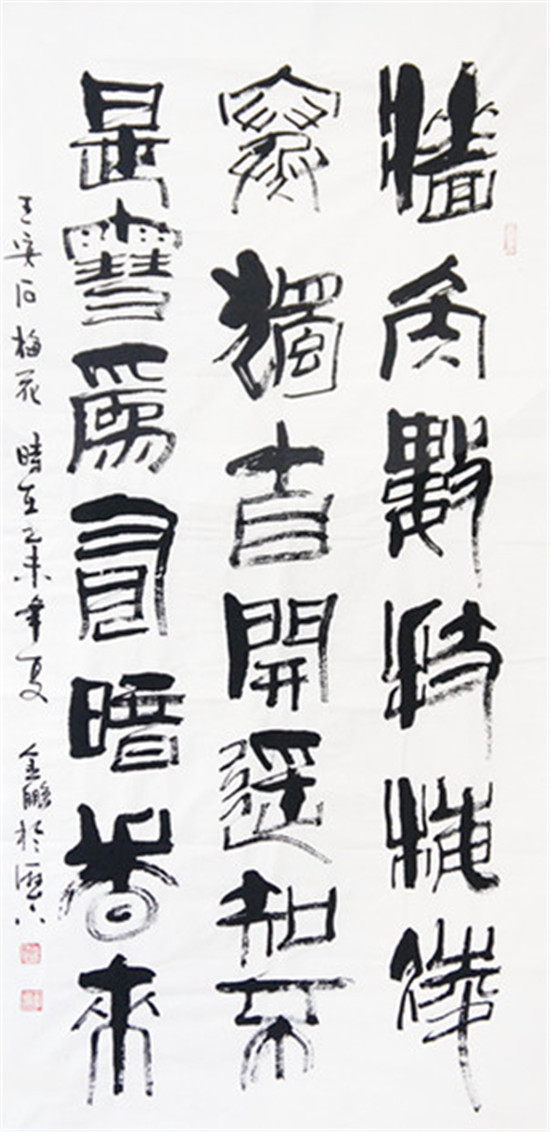 牆角數枝梅凌
寒獨自開遥知不
是雪爲有暗香來
王安石梅花 時在乙未年夏 金鵬於歷下